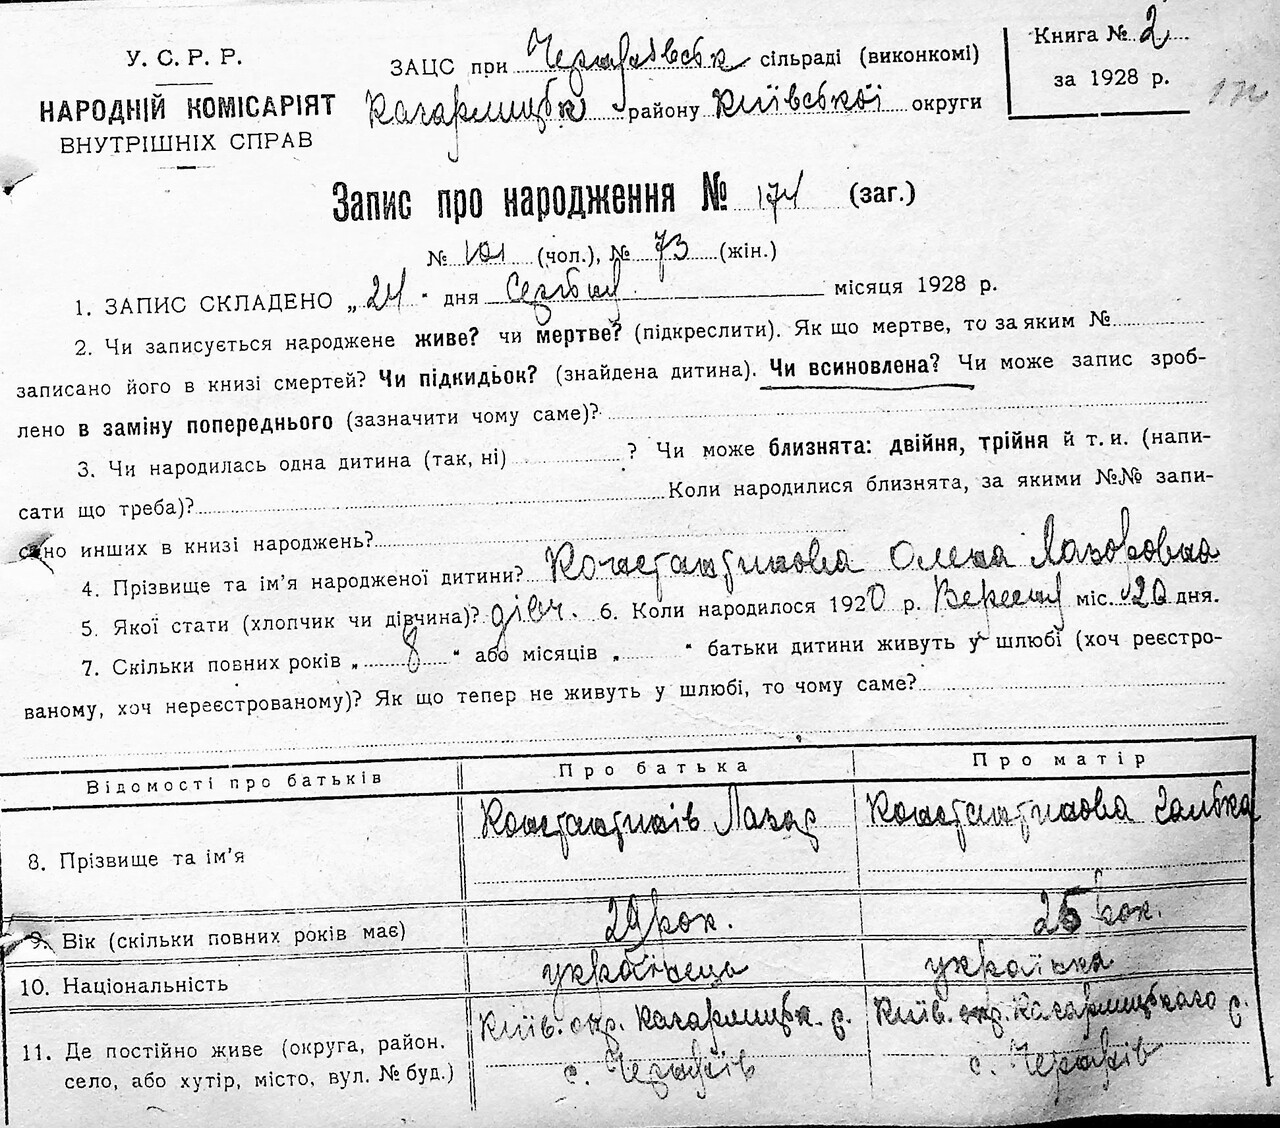 У. С. Р. Р.
НАРОДНІЙ КОМІСАРІЯТ
ВНУТРІШНІХ СПРАВ
ЗАЦС при сільраді (виконкомі)
Кагарлицьк району Київської округи
Книга № 2
за 1928 р.
Запис про народження № 174 (заг.)
№ 101 (чол.), № 73 (жін.)
1. ЗАПИС СКЛАДЕНО „24“ дня Серпня місяця 1928 р.
2. Чи записується народжене живе? чи мертве? (підкреслити). Як що мертве, то за яким №
записано його в книзі смертей? Чи підкидьок? (знайдена дитина). Чи всиновлена? Чи може запис зроб-
лено в заміну попереднього (зазначити чому саме)?
3. Чи народилась одна дитина (так, ні) ? Чи може близнята: двійня, трійня й т. и. (напи-
сати що треба)? Коли народилися близнята, за якими №№ запи-
сано инших в книзі народжень?
4. Прізвище та ім’я народженої дитини? Константинова Олена Лазоровна
5. Якої стати (хлопчик чи дівчина)? дівч. 6. Коли народилося 1920 р. Вересня міс. 20 дня.
7. Скільки повних років „8“ або місяців „ “ батьки дитини живуть у шлюбі (хоч реєстро-
ваному, хоч нереєстрованому)? Як що тепер не живуть у шлюбі, то чому саме?
Відомості про батьків Про батька Про матір
8. Прізвище та ім’я Константинів Лазар Константинова
9. Вік (скільки повних років має) 29 рок. 25 рок.
10. Національність українець українка
11. Де постійно живе (округа, район, село, або хутір, місто, вул. № буд.)
Київ. окр. Кагарлицьк. р. Київ. окр. Кагарлицького р.
с. с.